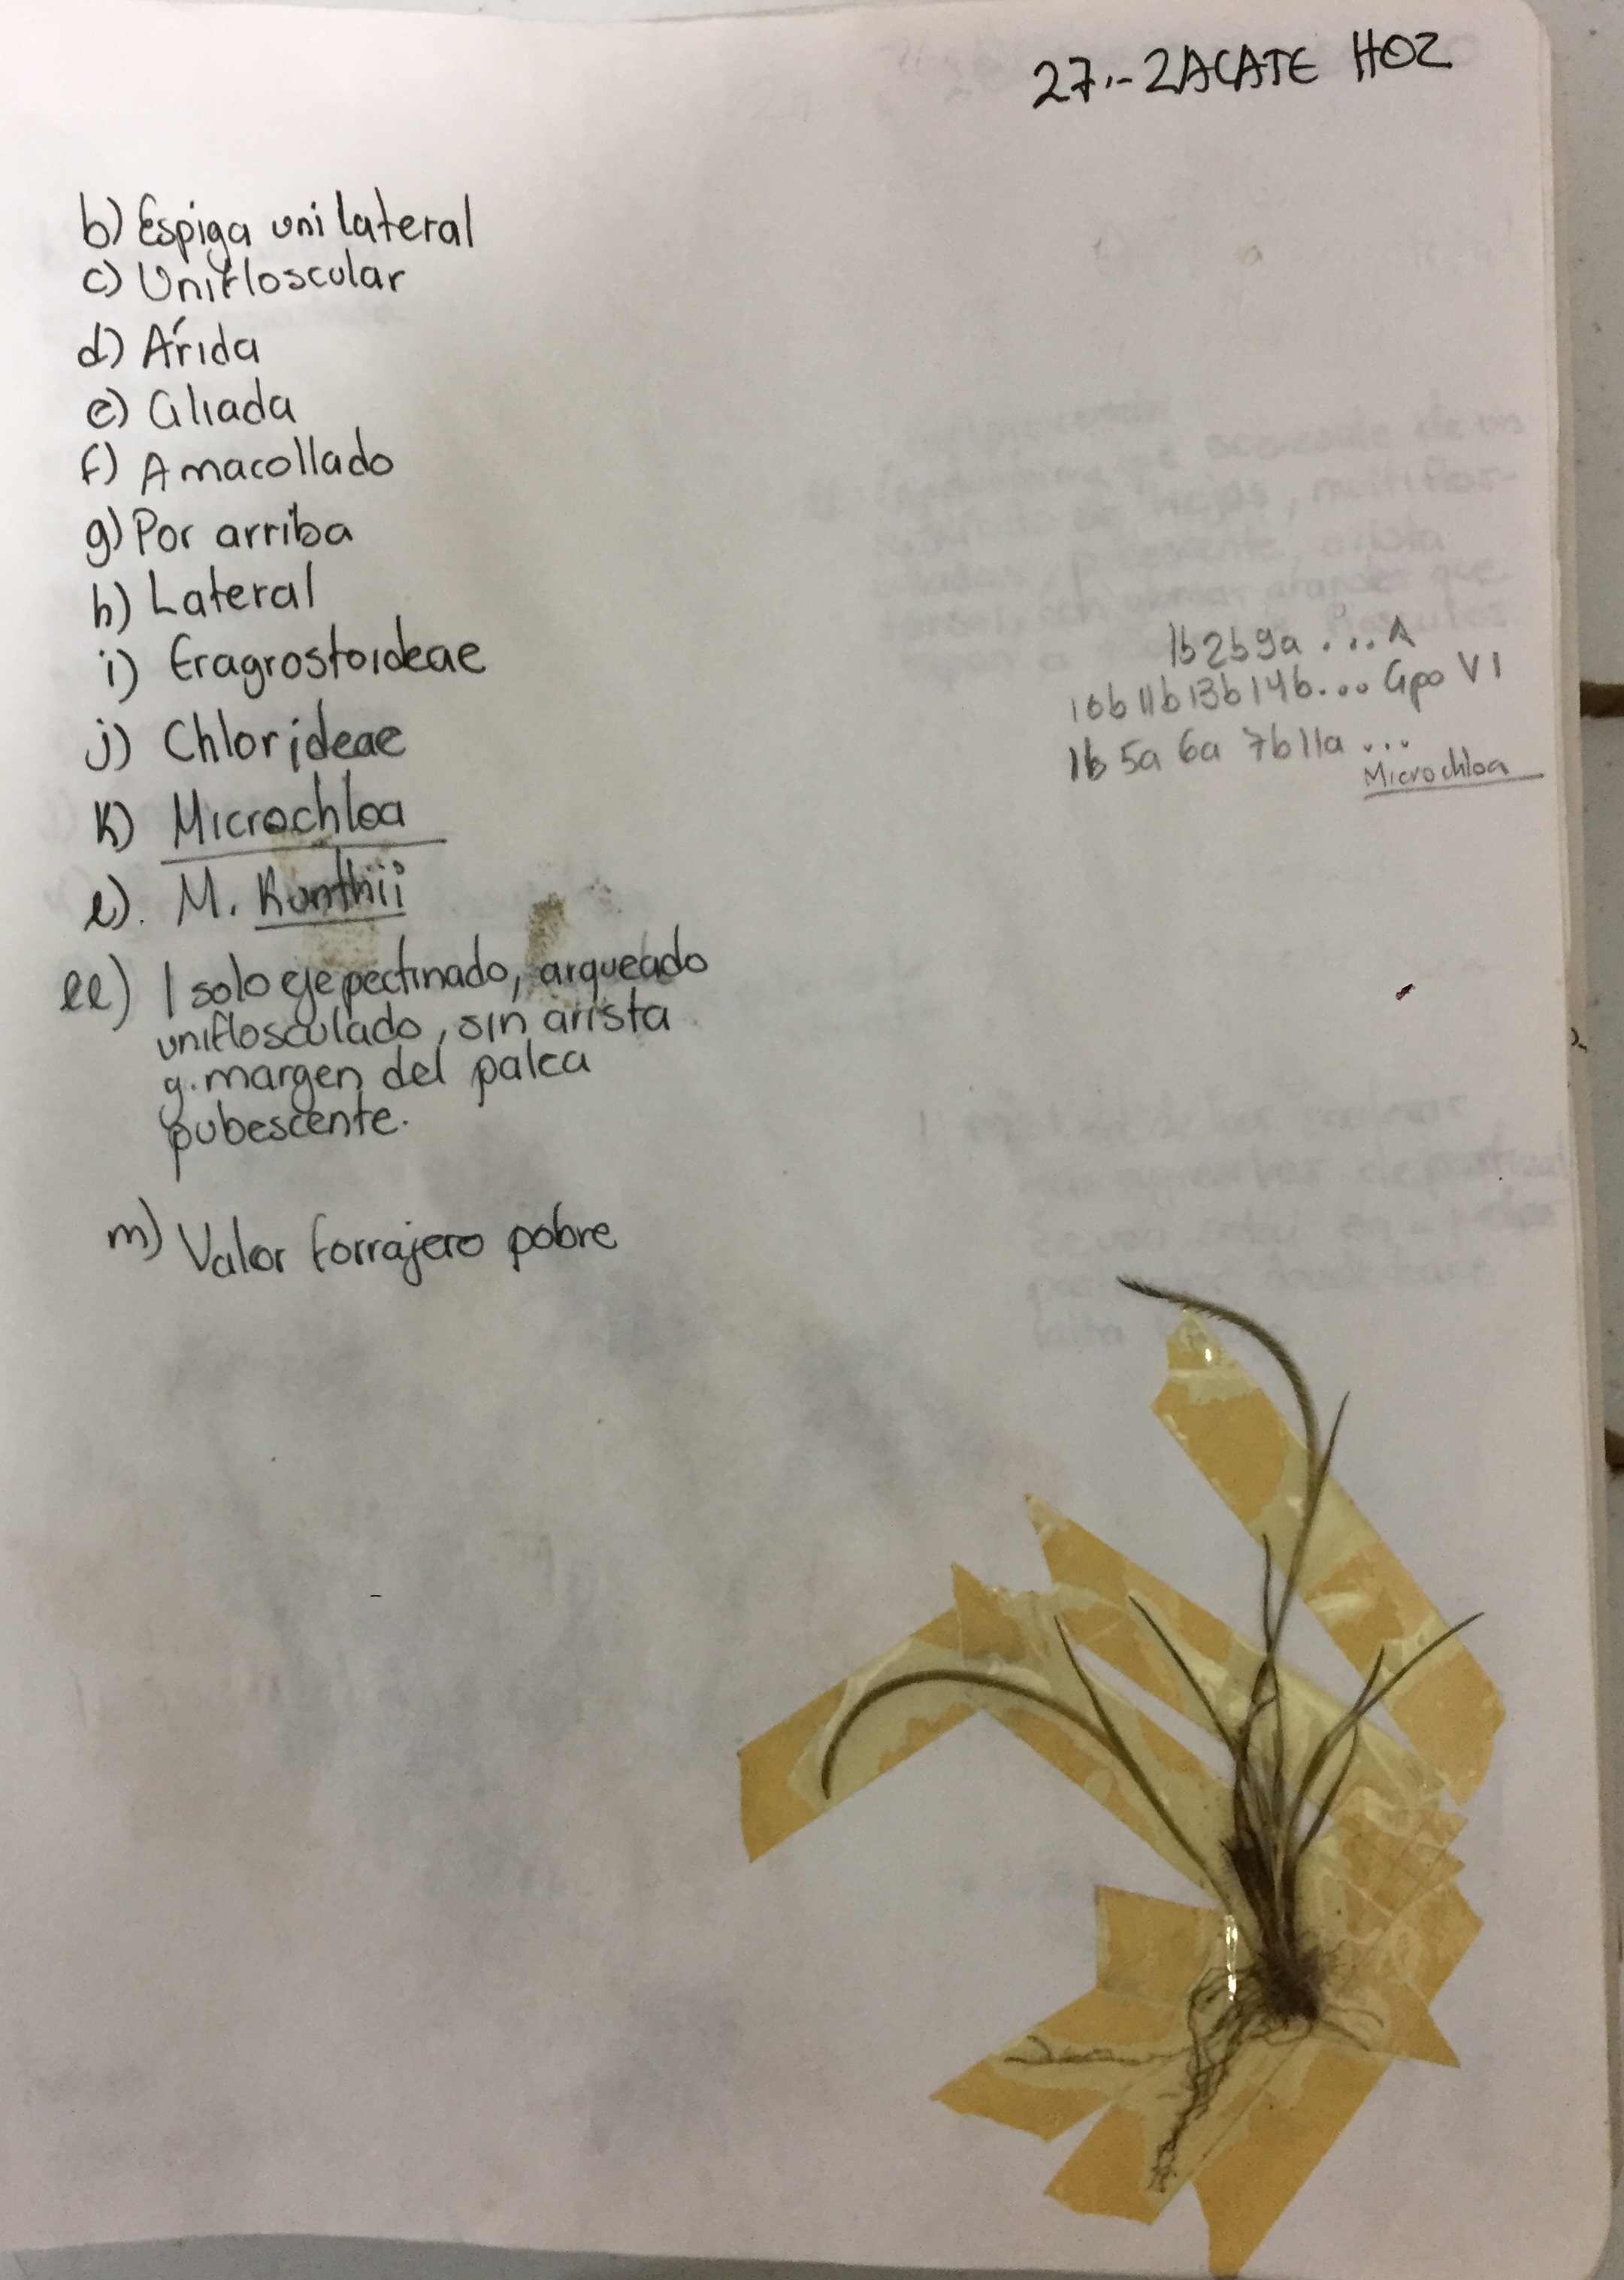 27.- ZACATE HOZ
b) Espiga unilateral
c) Unifloscular
d) Árida
e) Ciliada
f) Amacollado
g) Por arriba
h) Lateral
i) Eragrostoideae
j) Chlorideae
k) Microchloa
l). M. Kunthii
ll) 1 solo eje pectinado, arqueado
uniflosculado, sin arista
y margen del palea
pubescente.
m) Valor forrajero pobre
1b 2b 9a ... A
10b 11b 13b 14b... Gpo VI
1b 5a 6a 7b 11a ...
Microchloa